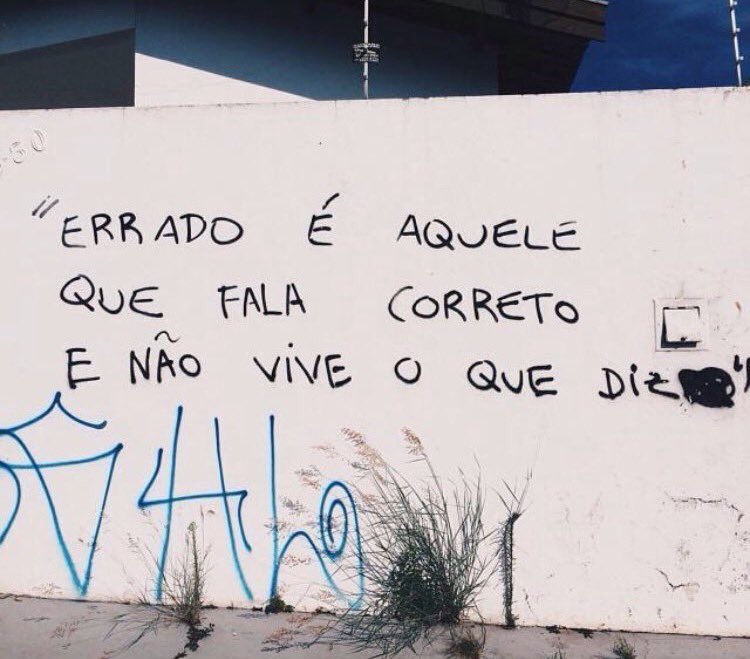 "ERRADO É AQUELE
QUE FALA CORRETO
E NÃO VIVE O QUE DIZ"